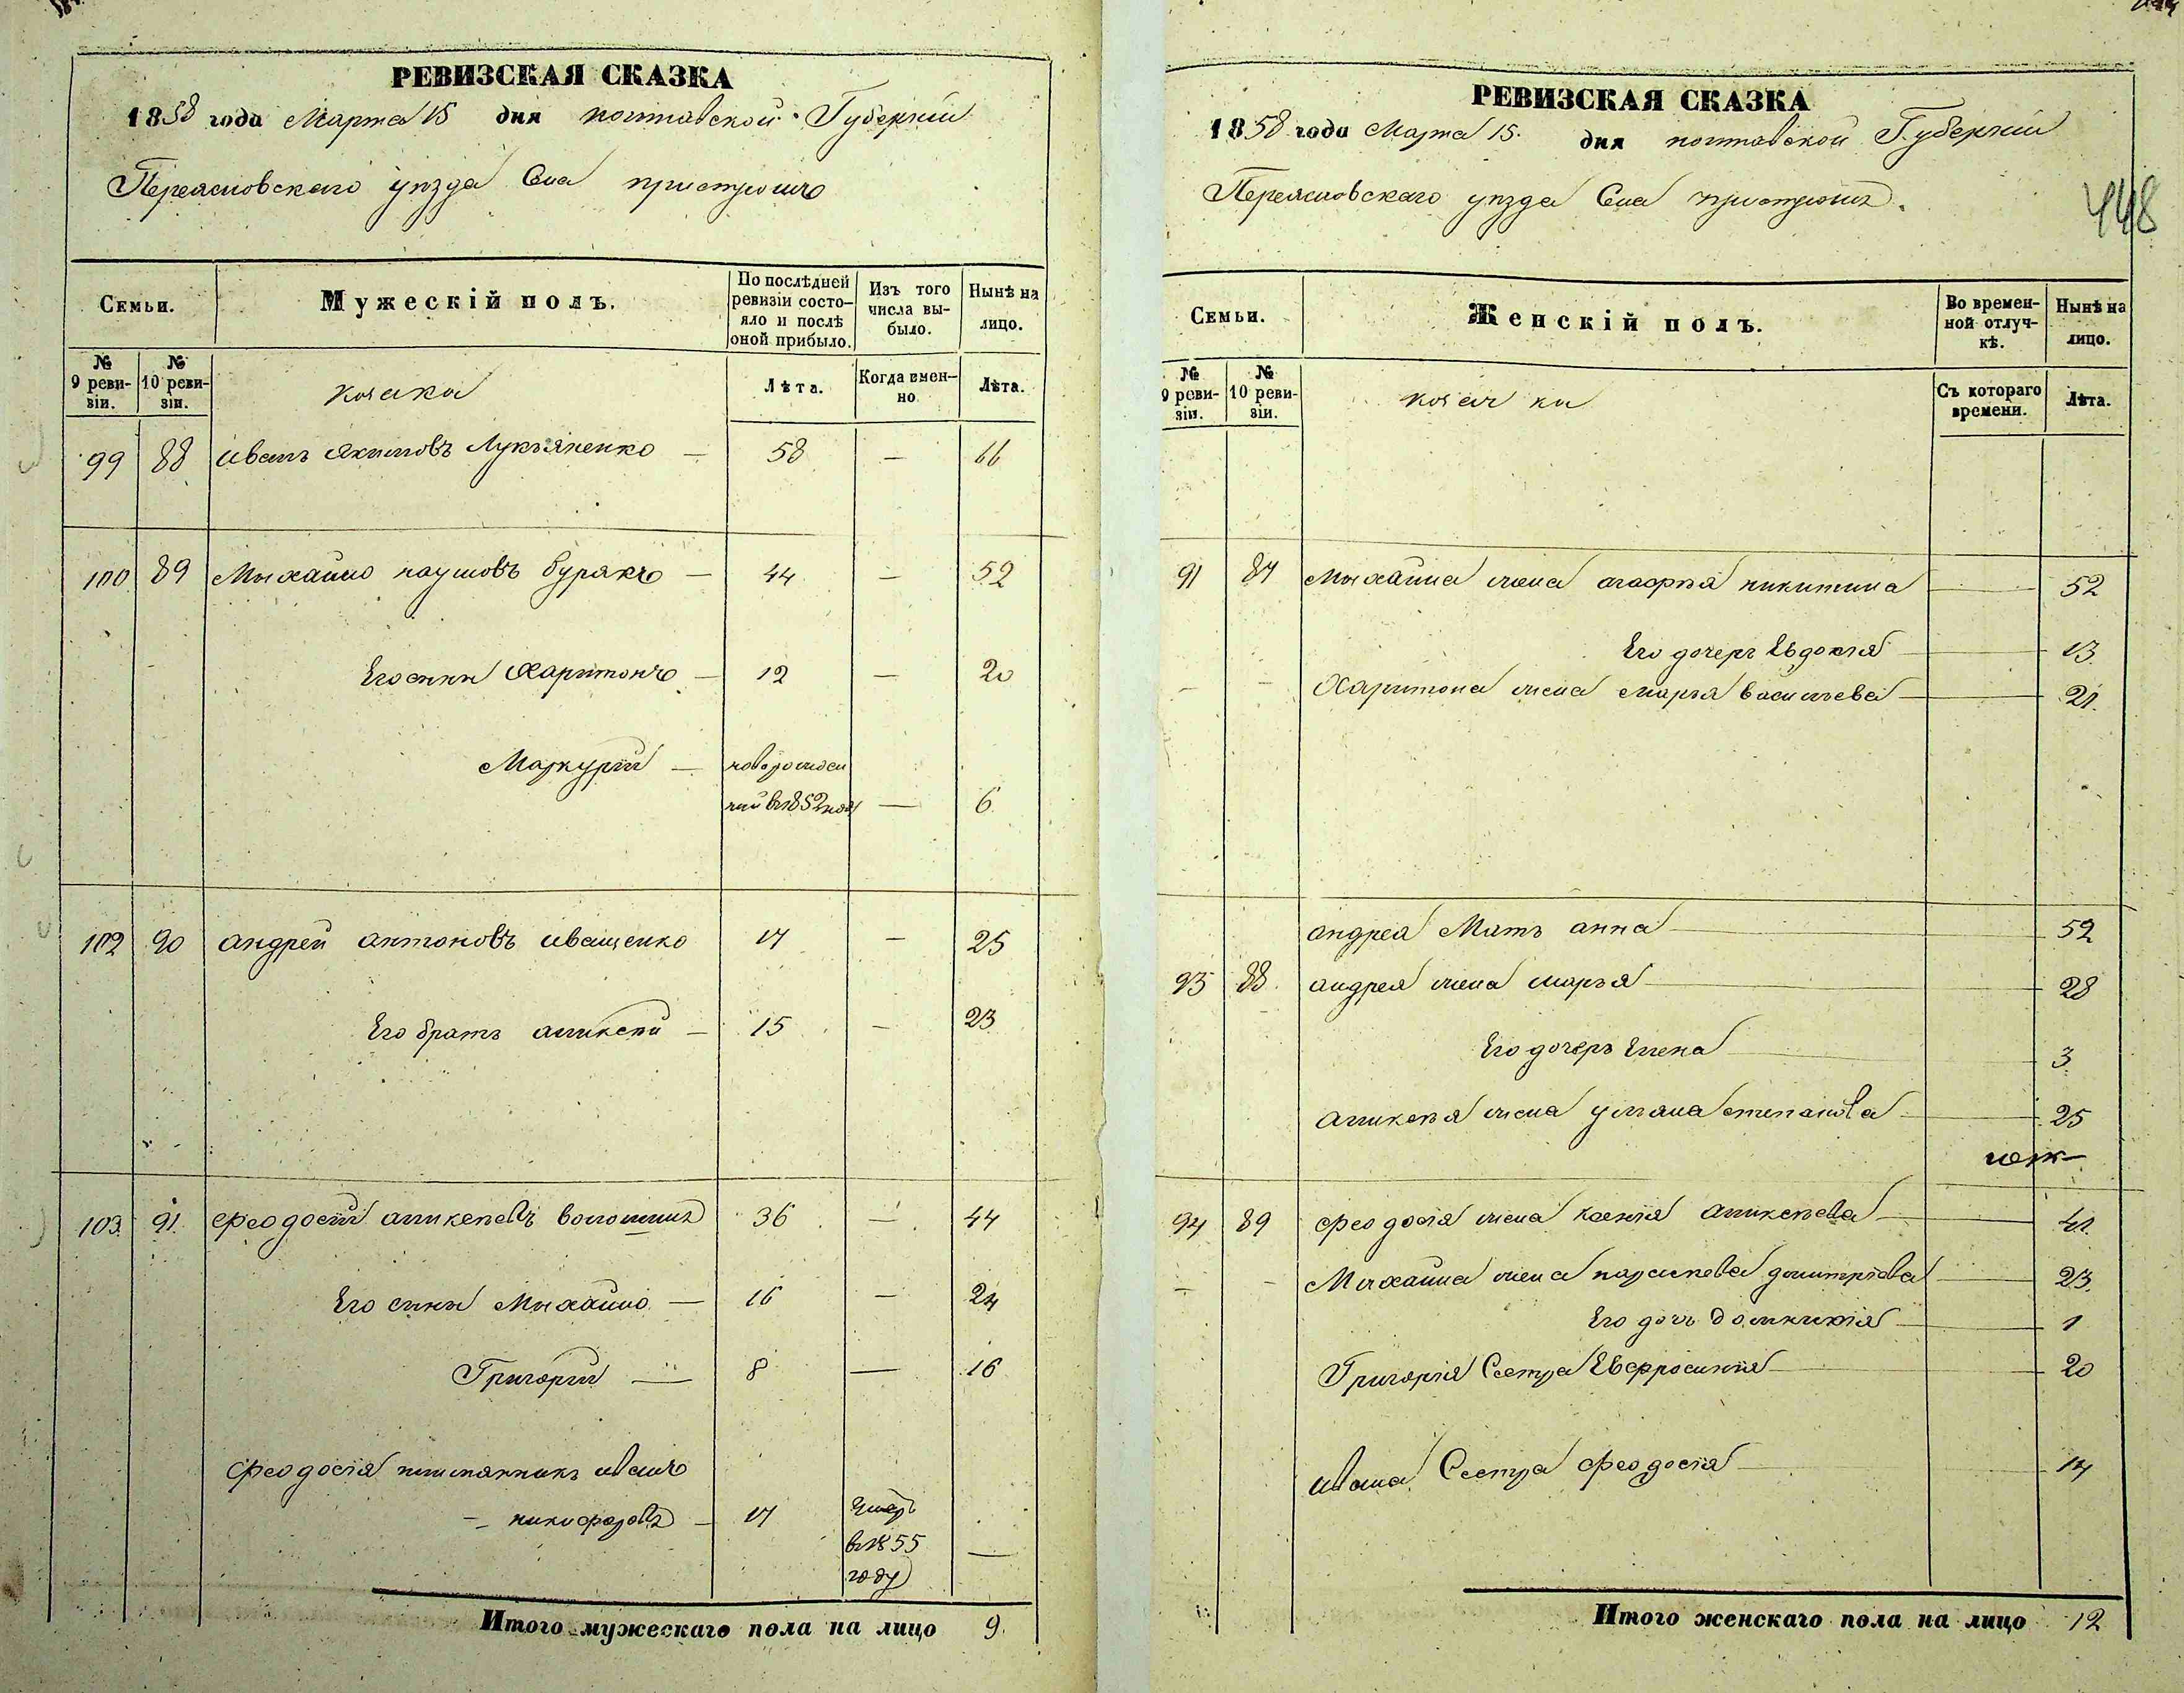 РЕВИЗСКАЯ СКАЗКА
1858 года Марта 15 дня полтавской Губернии
Переяславского уезда Села пристромъ
Семьи.
Мужескій полъ.
По послѣдней ревизіи состояло и послѣ оной прибыло.
Изъ того числа выбыло.
Нынѣ на лицо.
№ 9 ревизіи.
№ 10 ревизіи.
козаки
Лѣта.
Когда имен-
но
Лѣта.
99 88 иванъ Якимовъ Лукьяненко — 58 — 66
100 89 Михайло наумовъ буракъ — 44 — 52
Его сыны Харитонъ — 12 — 20
Маркурій — новорожден
ный въ 1852 году — 6
102 90 андрей антоновъ иващенко 17 — 25
Его братъ аликсей — 15 — 23
103 91 феодосій аликсеевъ волошинъ 36 — 44
Его сыны Михайло — 16 — 24
Григорій — 8 — 16
феодосія племянникъ иванъ
никифоровъ — 17 умеръ
въ 1855 —
году
Итого мужескаго пола на лицо 9
РЕВИЗСКАЯ СКАЗКА
1858 года Марта 15. дня полтавской Губернии
Переяславского уезда Села пристромъ.
448
Семьи.
Женскій полъ.
Во временной отлучкѣ.
Нынѣ на лицо.
№ 9 ревизіи.
№ 10 ревизіи.
козачки
Съ котораго времени.
Лѣта.
91 87 Михайла жена агафія никитина — 52
Его дочерь Евдокія — 13
Харитона жена марья васильева — 21
андрея Мать анна — 52
93 88 андрея жена марья — 28
Его дочерь Елена — 3
аликсея жена уляна степанова — 25
94 89 феодосія жена ксенія аликсеева — 41
Михайла жена параскева дмитріева — 23
Его дочь домникія — 1
Григорія Сестра Евфросинія — 20
ивана Сестра феодосія — 14
Итого женскаго пола на лицо 12